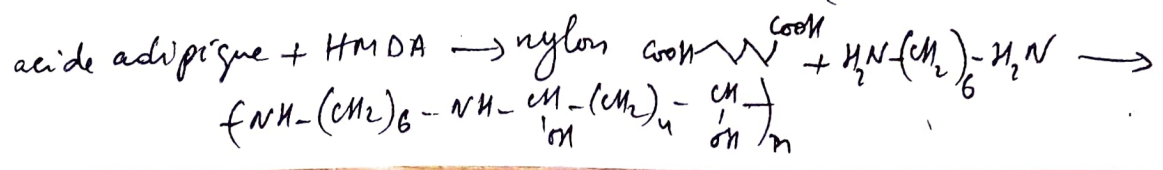 acide adipique + HMDA → nylon COOH COOH + H₂N-(CH₂)₆-H₂N →
{NH-(CH₂)₆-NH-CH-(CH₂)₄-CH}n
OH OH